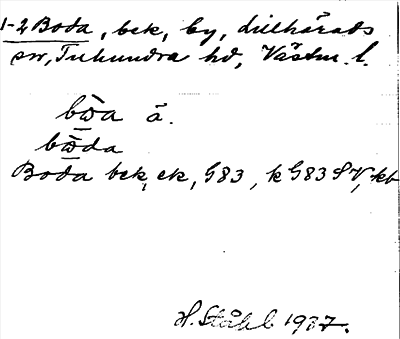 1-2 Boda, bek, by, Lillhärads
sn, Tuhundra hd, Västm. l.
bωa ä.
bὼda
Boda bek, ek, G83, k G83 SV, kt
H. Ståhl 1937.